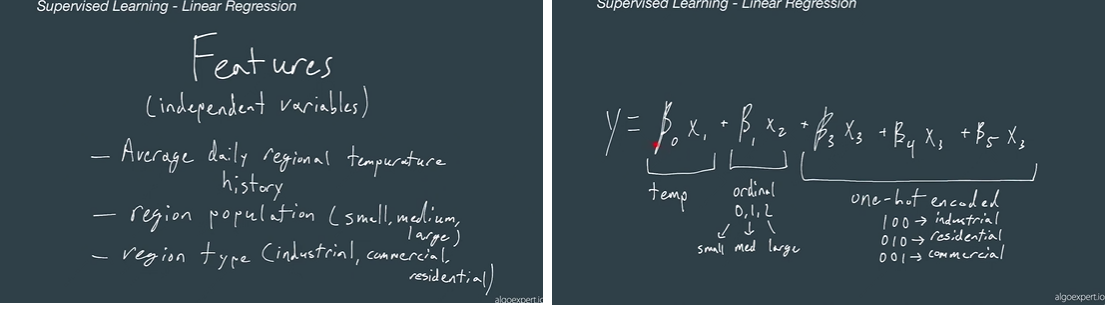 Supervised Learning - Linear Regression
Features
(independent variables)
- Average daily regional tempurature
history
- region population (small, medium,
large)
- region type (industrial, commercial,
residential)
algoexpert.io
Supervised Learning - Linear Regression
y = β₀ x₁ + β₁ x₂ + β₃ x₃ + β₄ x₃ + β₅ x₃
temp
ordinal
0,1,2
small med large
one-hot encoded
100 → industrial
010 → residential
001 → commercial
algoexpert.io